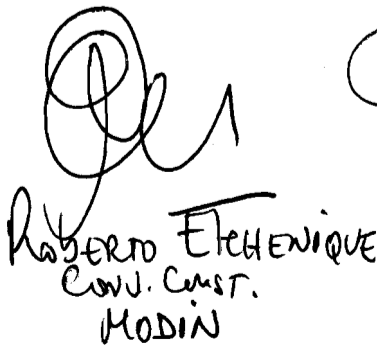 ROBERTO ETCHENIQUE
CONV. CONST.
MODIN